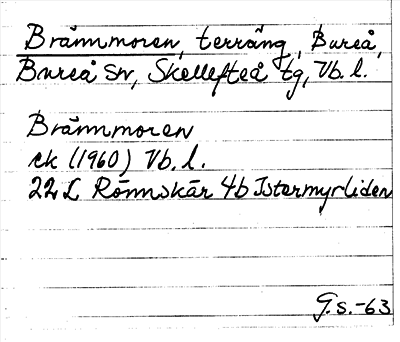 Brännmoren, terräng, Bureå,
Bureå sn, Skellefteå tg, Vb. l.
Brännmoren
ek (1960) Vb. l.
22 L Rönnskär 4b Istermyrliden
G.s.-63